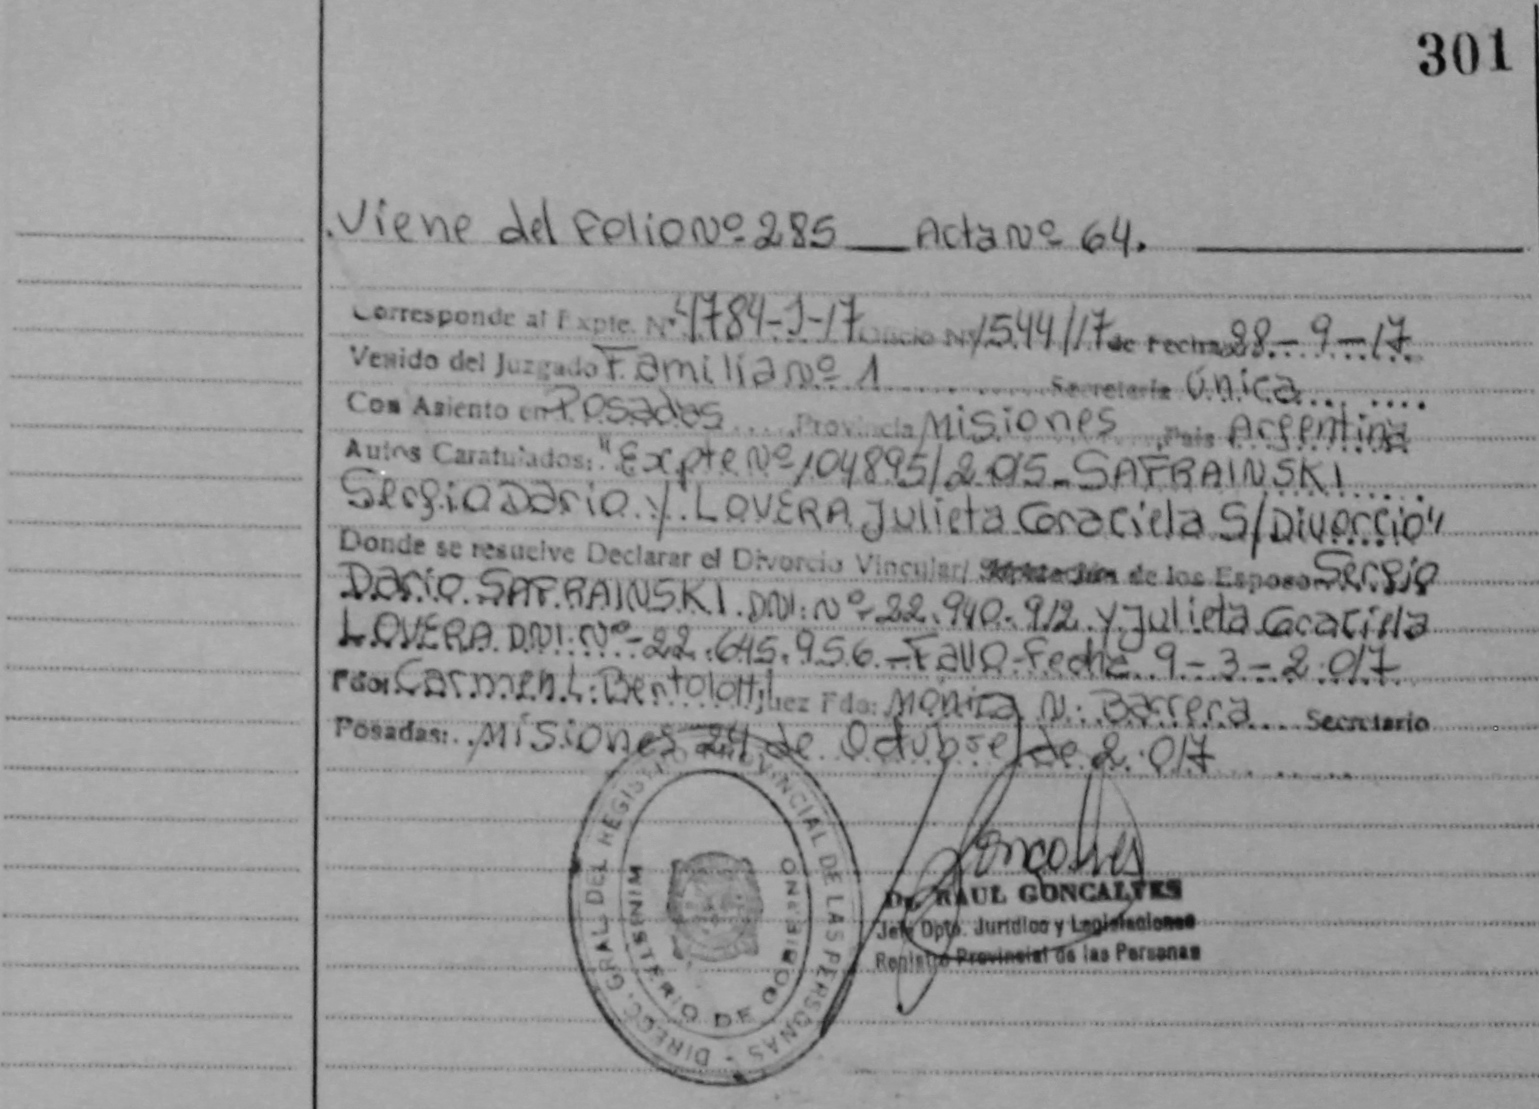 301
Viene del Folio Nº 285 __ Acta Nº 64.
Corresponde al Expte. Nº 4784-J-17 Oficio Nº 1544/17 de Fecha 28-9-17
Venido del Juzgado Familia Nº 1 Secretaría Única
Con Asiento en Posadas Provincia Misiones País Argentina
Autos Caratulados: "Expte Nº 104895/2.015 - SAFRAINSKI
Sergio Darío y LOVERA Julieta Graciela S/Divorcio"
Donde se resuelve Declarar el Divorcio Vincular/ de los Esposos Sergio
Darío SAFRAINSKI DNI: Nº 22.940.912 y Julieta Graciela
LOVERA DNI: Nº 22.645.956. - Fallo - Fecha 9-3-2.017
Fdo: Carmen L. Bertolotti Juez Fdo: Mónica N. Barrera Secretario
Posadas: Misiones 24 de Octubre de 2.017
DIRECC. GRAL. DEL REGISTRO PROVINCIAL DE LAS PERSONAS -
MINISTERIO DE GOBIERNO
Goncalves
Dr. RAUL GONCALVES
Jefe Dpto. Jurídico y Legislaciones
Registro Provincial de las Personas